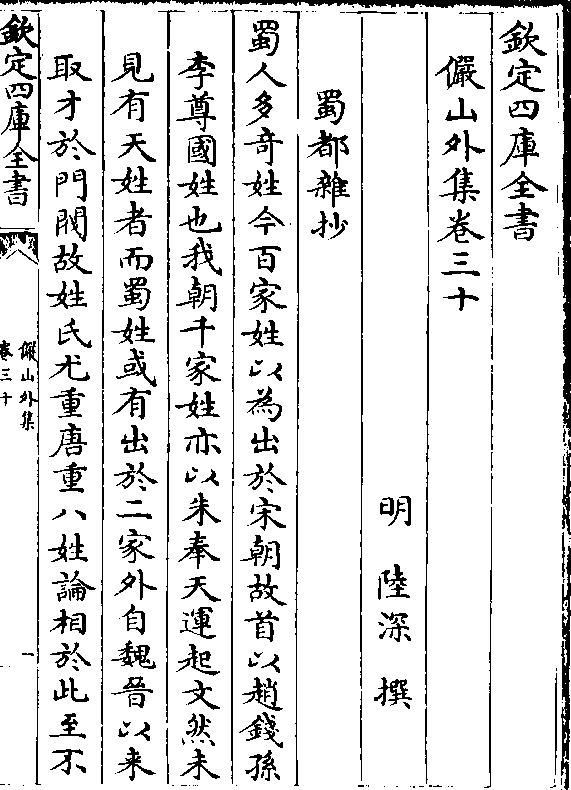 欽定四庫全書
儼山外集卷三十
明　陸深　撰
蜀都雜抄
蜀人多奇姓今百家姓以為出於宋朝故首以趙錢孫
李尊國姓也我朝千家姓亦以朱奉天運起文然未
見有天姓者而蜀姓或有出於二家外自魏晉以来
取才於門閥故姓氏尤重唐重八姓論相於此至不
欽定四庫全書
儼山外集
卷三十
一